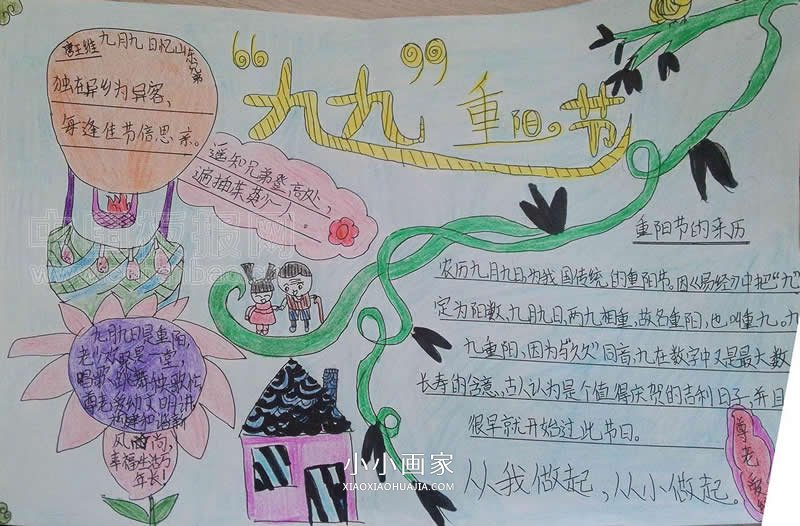 唐王维 九月九日忆山东兄弟
独在异乡为异客，
每逢佳节倍思亲。
遥知兄弟登高处，
遍插茱萸少一人。
“九九”重阳。节
重阳节的来历
农历九月九日，为我国传统的重阳节。因《易经》中把“九”
定为阳数，九月九日，两九相重，故名重阳，也叫重九。九
九重阳，因为与“久久”同音，九在数字中又是最大数
长寿的含意，古人认为是个值得庆贺的吉利日子，并且
很早就开始过此节日。
从我做起，从小做起。
尊老
九月九日是重阳，
老少欢聚是一堂
唱歌跳舞
尊老爱幼文明讲
风尚，
幸福生活万
年长！
中国板报网
小小画家
XIAOXIAOHUAJIA.COM